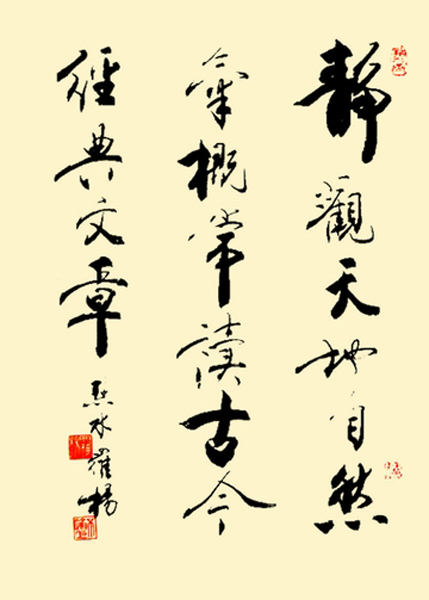 靜觀天地自然
氣概常讀古今
經典文章
水羅楊